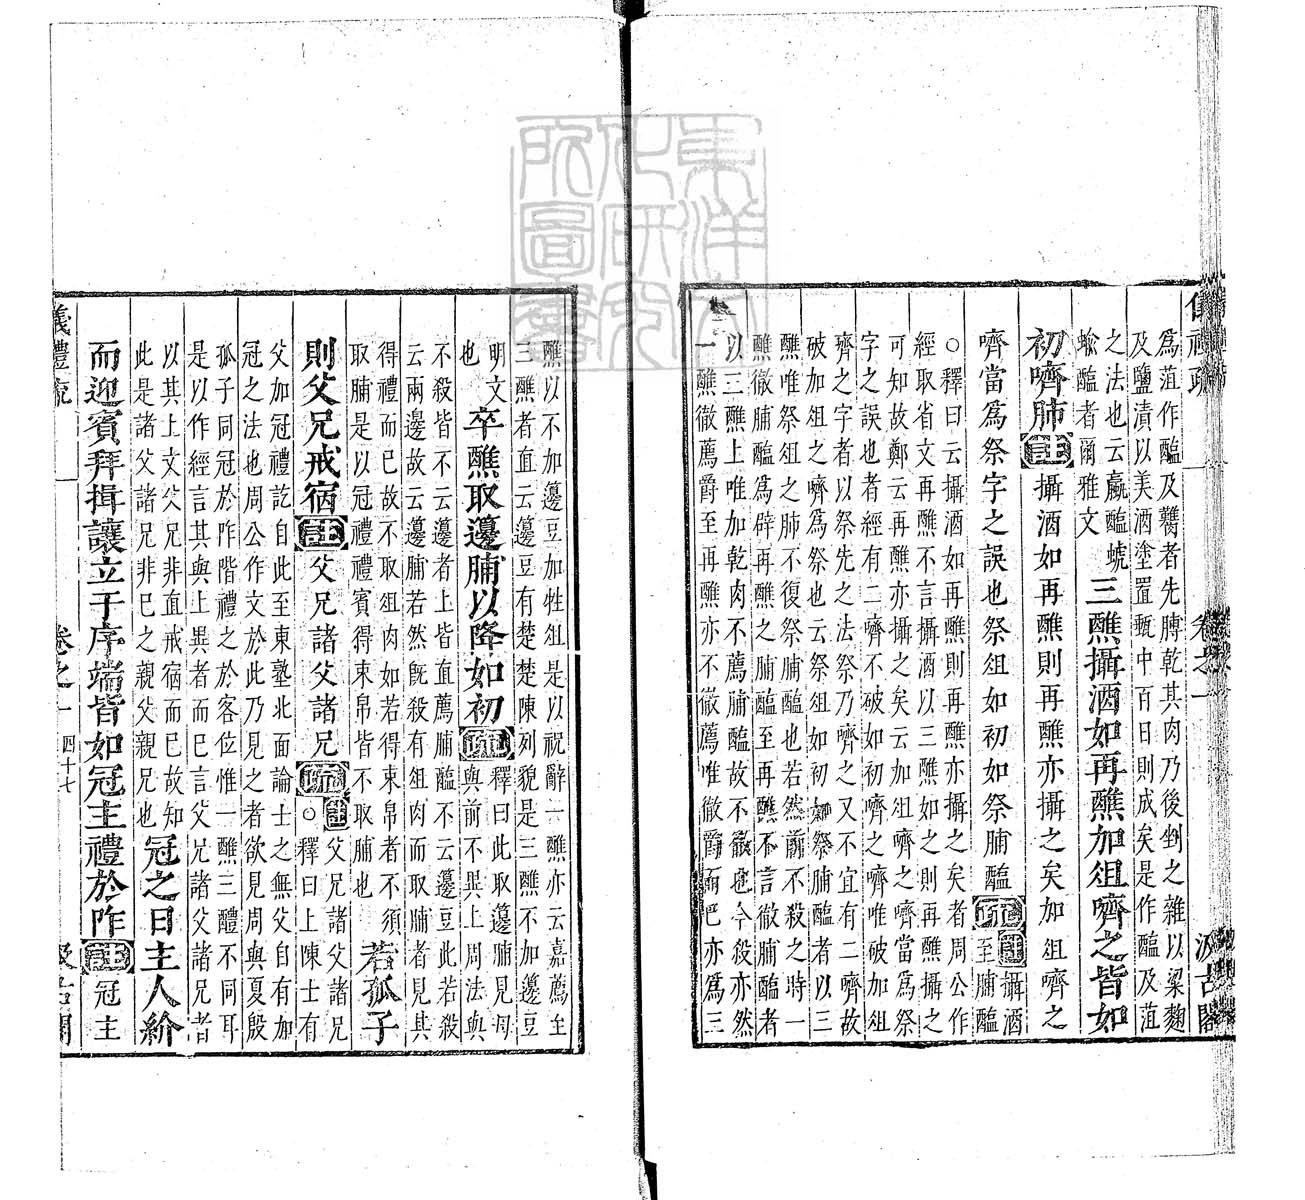 儀禮疏 卷之一 汲古閣
為菹作醢及臡者先膊乾其肉乃後剉之雜以粱麴
及鹽漬以美酒塗置甄中百日則成矣是作醢及菹
之法也云蠃醢螔
蝓醢者爾雅文
三醮攝酒如再醮加俎嚌之皆如
初嚌肺 註 攝酒如再醮則再醮亦攝之矣加俎嚌之
嚌當為祭字之誤也祭俎如初如祭脯醢 疏 註攝酒
至脯醢
○釋曰云攝酒如再醮則再醮亦攝之矣者周公作
經取省文再醮不言攝酒以三醮如之則再醮攝之
可知故鄭云再醮亦攝之矣云加俎嚌之嚌當為祭
字之誤也者經有二嚌不破如初嚌之嚌唯破加俎
嚌之字者以祭先之法祭乃嚌之又不宜有二嚌故
破加俎之嚌為祭也云祭俎如初如祭脯醢者以三
醮唯祭俎之肺不復祭脯醢也若然前不殺之時一
醮徹脯醢為辟再醮之脯醢至再醮不言徹脯醢者
以三醮上唯加乾肉不薦脯醢故不徹也今殺亦然
一醮徹薦爵至再醮亦不徹薦唯徹爵而巳亦為三
醮以不加籩豆加牲俎是以祝辭一醮亦云嘉薦至
三醮者直云籩豆有楚楚陳列貌是三醮不加籩豆
明文
也
卒醮取籩脯以降如初 疏 釋曰此取籩脯見母
與前不異上周法與
不殺皆不云籩者上皆直薦脯醢不云籩豆此若殺
云兩邊故云籩脯若然既殺有俎肉而取脯者見其
得禮而已故不取俎肉如若得束帛者不須
取脯是以冠禮禮賓得束帛皆不取脯也
若孤子
則父兄戒宿 註 父兄諸父諸兄 疏 註父兄諸父諸兄
○釋曰上陳士有
父加冠禮訖自此至東塾北面論士之無父自有加
冠之法也周公作文於此乃見之者欲見周與夏殷
孤子同冠於阼階禮之於客位惟一醮三醴不同耳
是以作經言其與上異者而已言父兄諸父諸兄者
以其上文父兄非直戒宿而已故知
此是諸父諸兄非己之親父親兄也
冠之日主人紒
而迎賓拜揖讓立于序端皆如冠主禮於阼 註 冠主
儀禮疏 卷之一 四十七 汲古閣
東洋文化研究所圖書